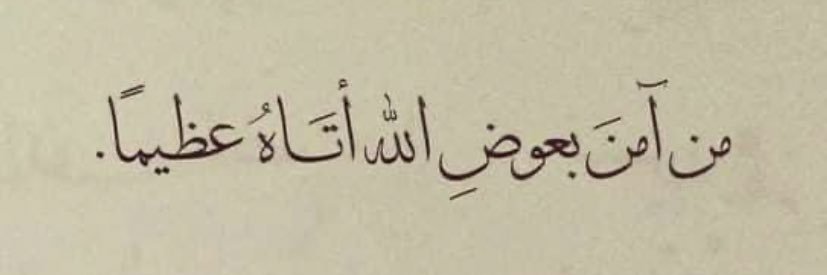 من آمنَ بعوضِ الله أتَاهُ عظيماً.